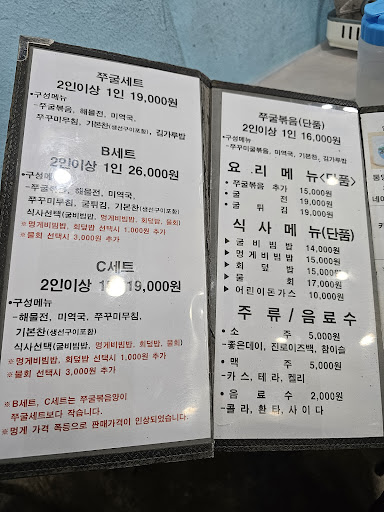 쭈굴세트
2인이상 1인 19,000원
•구성메뉴
-쭈굴볶음, 해물전, 미역국,
쭈꾸미무침, 기본찬(생선구이포함), 김가루밥
B세트
2인이상 1인 26,000원
•구성메뉴
-쭈굴볶음, 해물전, 미역국,
쭈꾸미무침, 굴튀김, 기본찬(생선구이포함)
식사선택(굴비빔밥, 멍게비빔밥, 회덮밥, 물회)
※멍게비빔밥, 회덮밥 선택시 1,000원 추가
※물회 선택시 3,000원 추가
C세트
2인이상 1인 19,000원
•구성메뉴
-해물전, 미역국, 쭈꾸미무침,
기본찬(생선구이포함)
식사선택(굴비빔밥, 멍게비빔밥, 회덮밥, 물회)
※멍게비빔밥, 회덮밥 선택시 1,000원 추가
※물회 선택시 3,000원 추가
※B세트, C세트는 쭈굴볶음양이
쭈굴세트보다 작습니다.
※멍게 가격 폭등으로 판매가격이 인상되었습니다.
쭈굴볶음(단품)
2인이상 1인 16,000원
•구성메뉴
-쭈꾸미굴볶음, 미역국, 기본찬, 김가루밥
요 리 메 뉴(단품)
•쭈굴볶음 추가 15,000원
•굴 전 19,000원
•굴 튀 김 19,000원
식 사 메 뉴(단품)
▶ 굴 비 빔 밥 14,000원
▶ 멍게비빔밥 15,000원
▶ 회 덮 밥 15,000원
▶ 물 회 17,000원
▶ 어린이돈가스 10,000원
주 류 / 음 료 수
•소 주 5,000원
-좋은데이, 진로이즈백, 참이슬
•맥 주 5,000원
-카스, 테라, 켈리
•음 료 수 2,000원
-콜라, 환타, 사이다